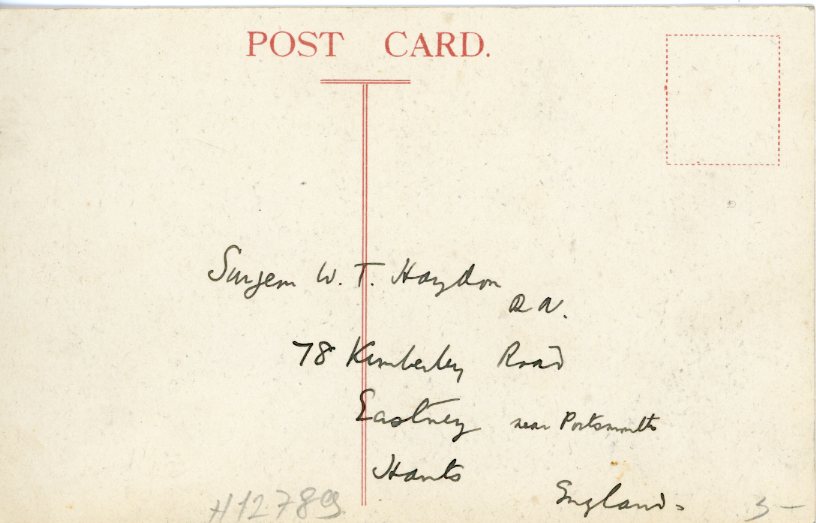 POST CARD.
Surgeon W. T. Haydon
R N.
78 Kimberley Road
Eastney near Portsmouth
Hants
England.
H12789
3-